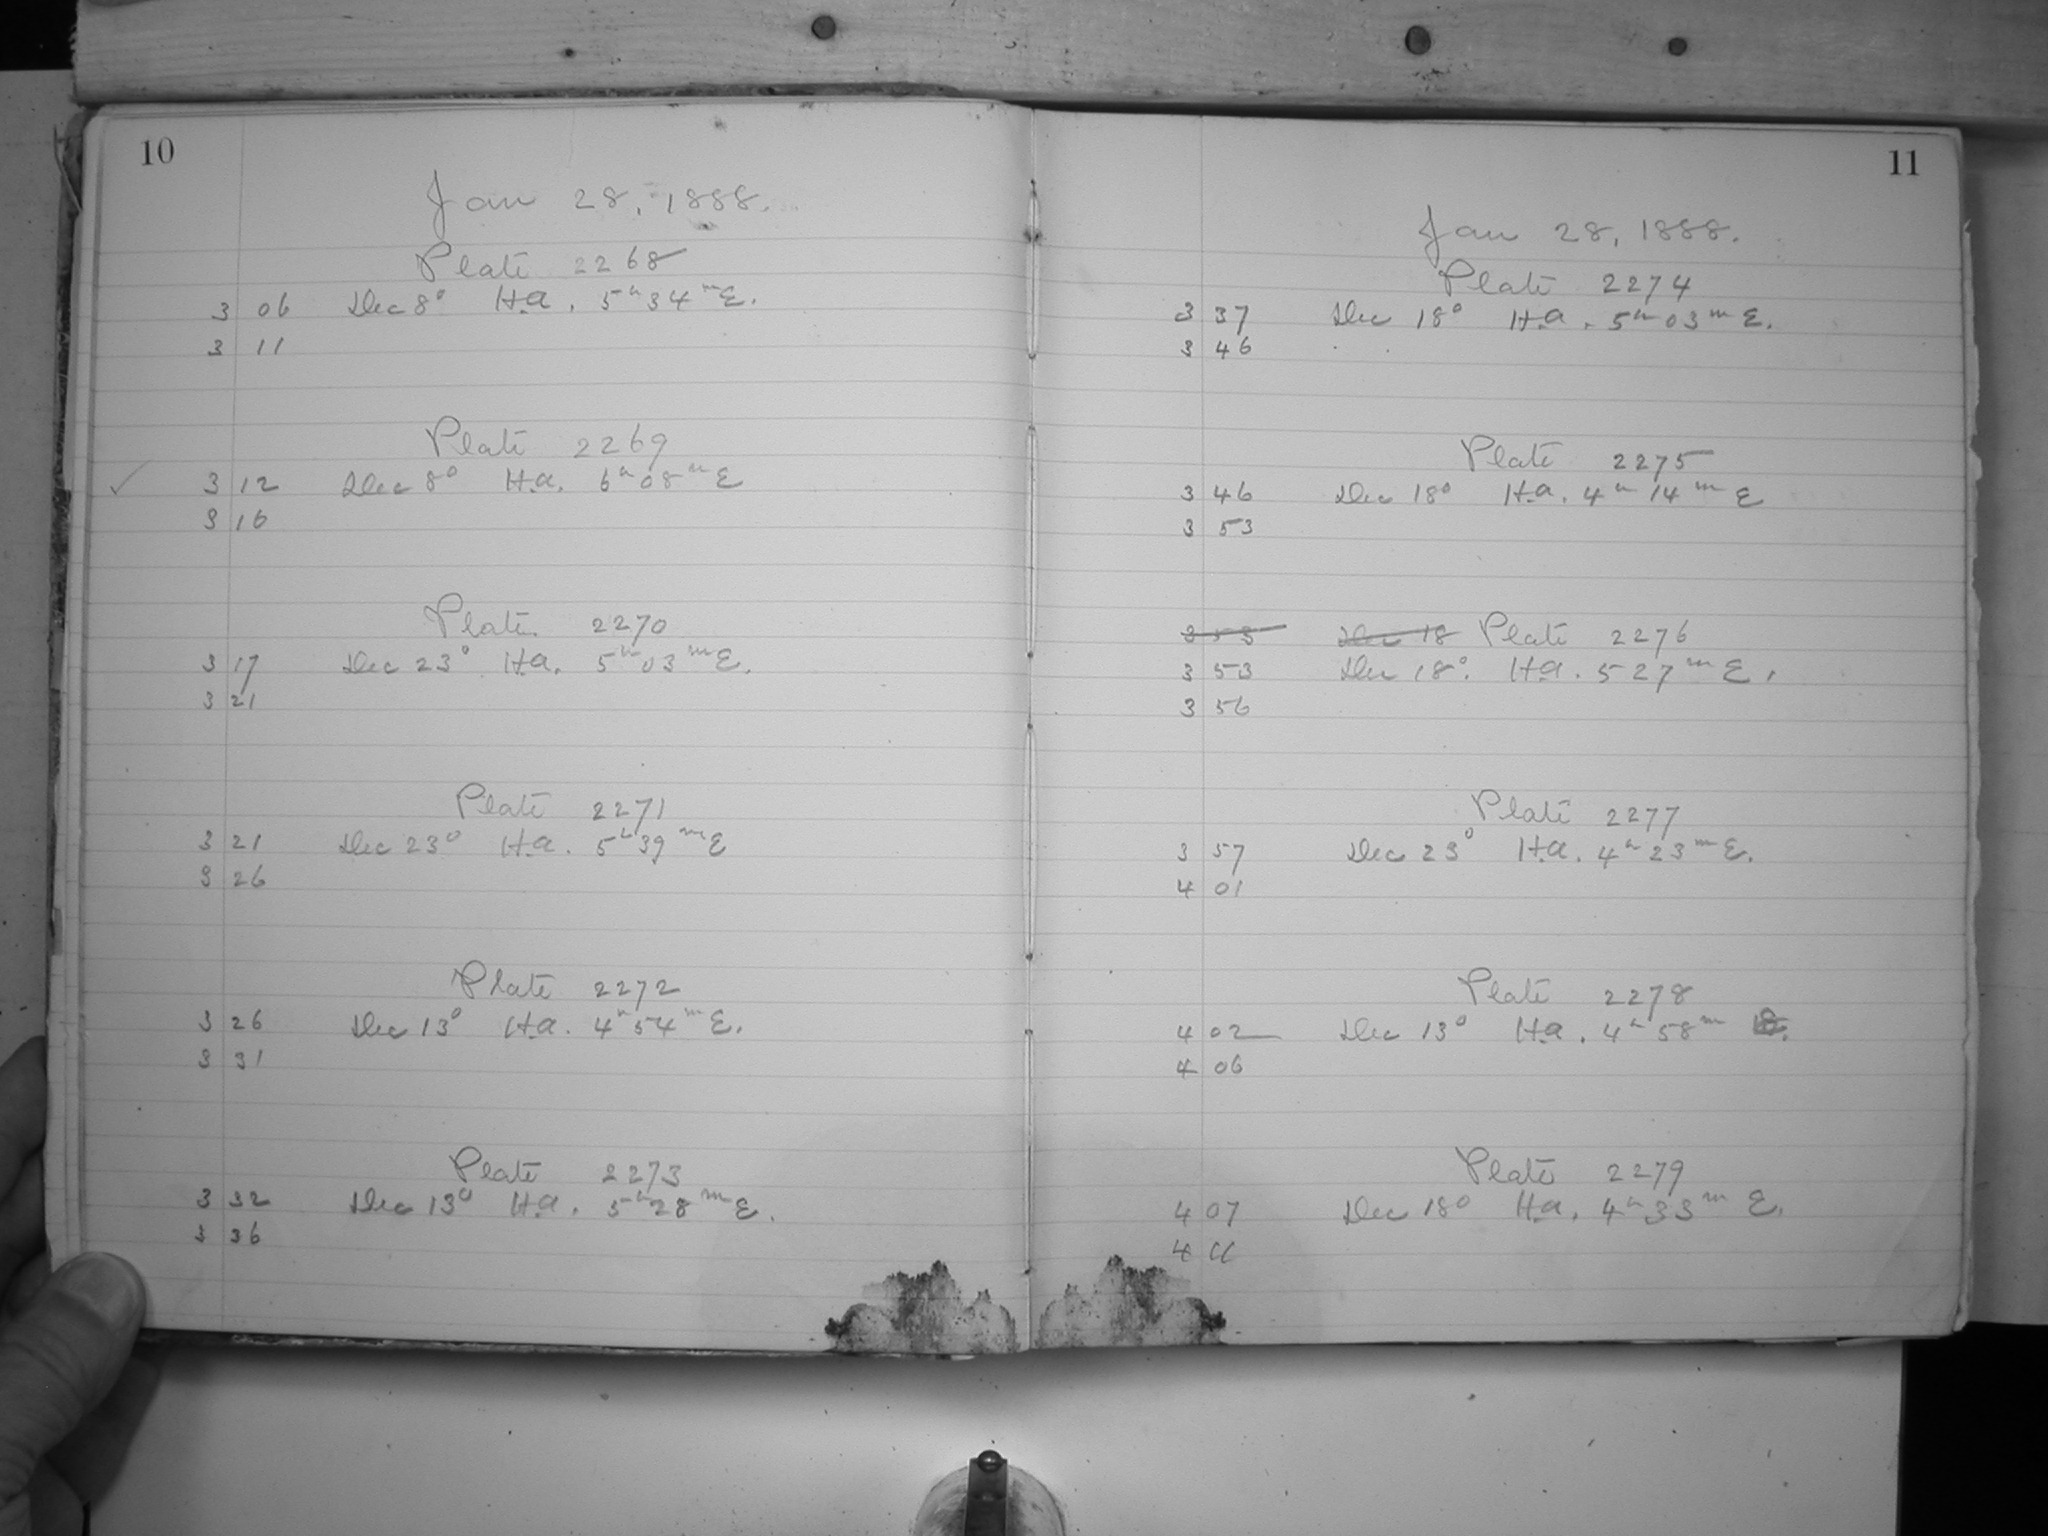 10
Jan 28, 1888.
Plate 2268
3 06 Dec 8° H.a. 5h 34m E.
3 11
Plate 2269
✓ 3 12 Dec 8° H.a. 6h 08m E
3 16
Plate 2270
3 17 Dec 23° H.a. 5h 03m E.
3 21
Plate 2271
3 21 Dec 23° H.a. 5h 39m E
3 26
Plate 2272
3 26 Dec 13° H.a. 4h 54m E.
3 31
Plate 2273
3 32 Dec 13° H.a. 5h 28m E.
3 36
11
Jan 28, 1888.
Plate 2274
3 37 Dec 18° H.a. 5h 03m E.
3 46
Plate 2275
3 46 Dec 18° H.a. 4h 14m E
3 53
3 53 Dec 18 Plate 2276
3 53 Dec 18° H.a. 5 27m E.
3 56
Plate 2277
3 57 Dec 23° H.a. 4h 23m E.
4 01
Plate 2278
4 02 Dec 13° H.a. 4h 58m
4 06
Plate 2279
4 07 Dec 18° H.a. 4h 33m E.
4 11